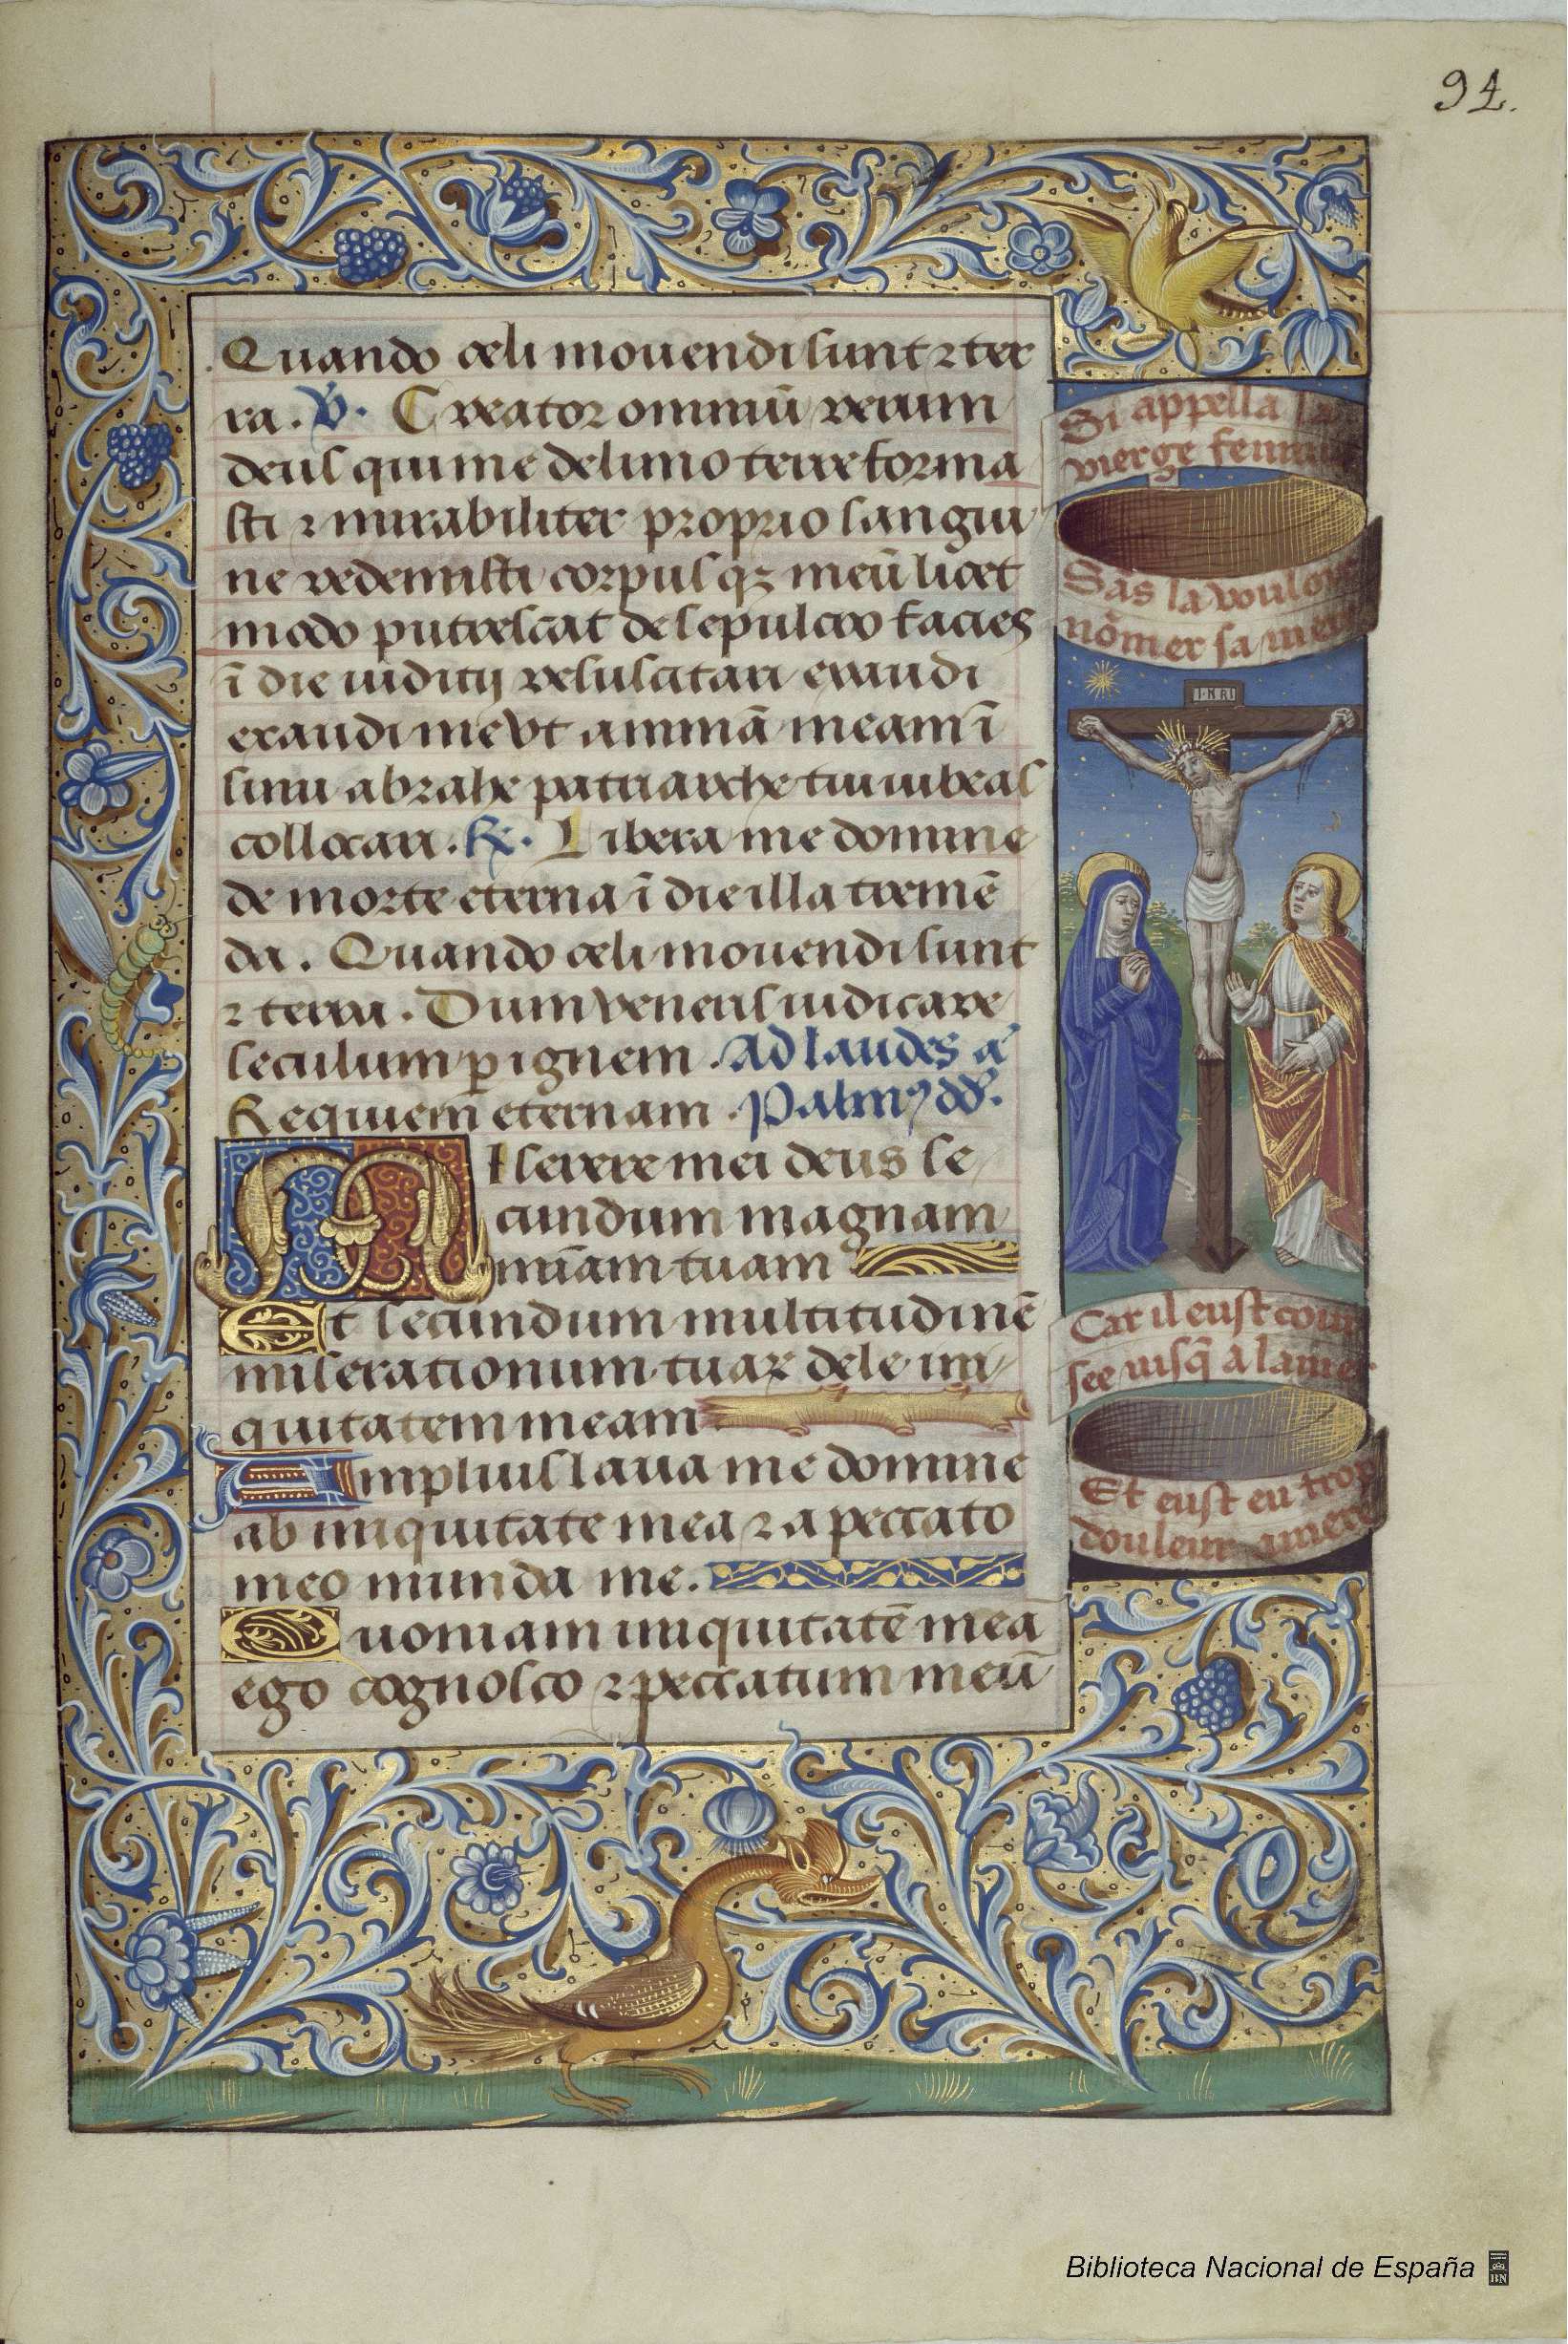 94.
Quando celi mouendi sunt ⁊ ter
ra. V. Creator omniū rerum
deus qui me de limo terre forma
sti ⁊ mirabiliter proprio sangui
ne redemisti corpusqꝫ meū licet
modo putrescat de sepulcro facies
ī die iudicij resuscitari exaudi
exaudi me vt animā meam ī
sinu abrahe patriarche tui iubeas
collocari. R. Libera me domine
de morte eterna ī die illa tremē
da. Quando celi mouendi sunt
⁊ terra. Dum veneris iudicare
seculum ꝑ ignem. Ad laudes aˉ
Requiem eternam. Psalmꝰ dd.
Miserere mei deus se
cundum magnam
miām tuam
Et secundum multitudinē
miserationum tuaꝝ dele ini
quitatem meam
Amplius laua me domine
ab iniquitate mea ⁊ a peccato
meo munda me.
Quoniam iniquitatē meā
ego cognosco ⁊ peccatum meū
Si appella la
vierge femme
Sās la vouloir
nōmer sa mere
I·N·RI
Car il eust cour
see iusq̄ a lame
Et eust eu trop
douleur amere
Biblioteca Nacional de España
BN